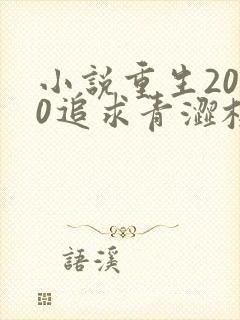 小説重生20
0追求青澀
語溪